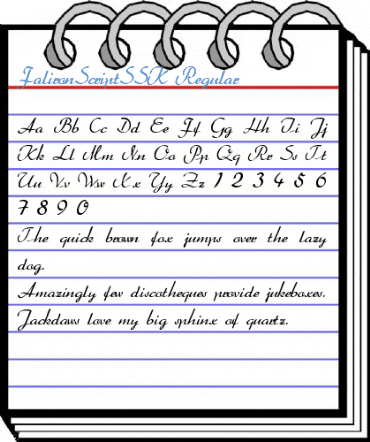 FalironScriptSSK Regular
Aa Bb Cc Dd Ee Ff Gg Hh Ii Jj
Kk Ll Mm Nn Oo Pp Qq Rr Ss Tt
Uu Vv Ww Xx Yy Zz 1 2 3 4 5 6
7 8 9 0
The quick brown fox jumps over the lazy
dog.
Amazingly few discotheques provide jukeboxes.
Jackdaws love my big sphinx of quartz.